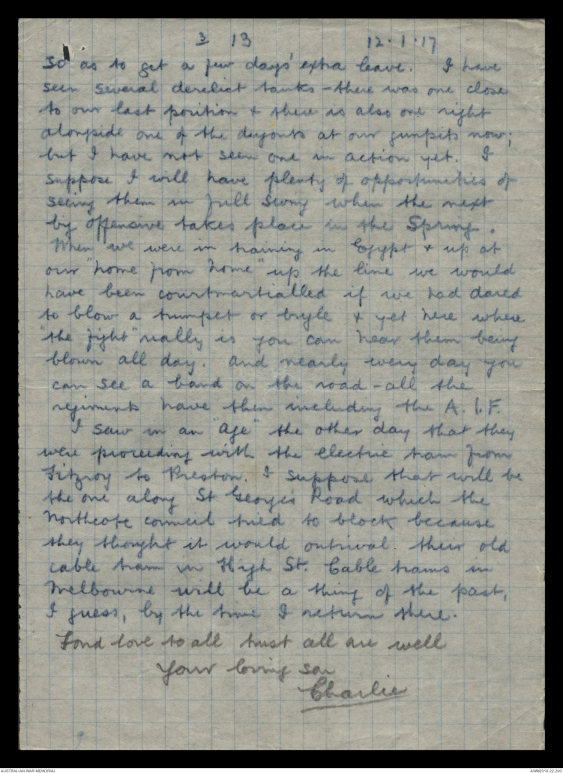 3 13 12.1.17
so as to get a few days' extra leave. I have
seen several derelict tanks - there was one close
to our last position & there is also one right
alongside one of the dugouts at our gunpits now;
but I have not seen one in action yet. I
suppose I will have plenty of opportunities of
seeing them in full swing when the next
big offensive takes place in the Spring.
When we were in training in Egypt & up at
our "home from home" up the line we would
have been courtmartialled if we had dared
to blow a trumpet or bugle & yet here where
"the fight" really is you can hear them being
blown all day. And nearly every day you
can see a band on the road - all the
regiments have them including the A.I.F.
I saw in an "Age" the other day that they
were proceeding with the electric tram from
Fitzroy to Preston. I suppose that will be
the one along St Georges Road which the
Northcote council tried to block because
they thought it would outrival their old
cable tram in High St. Cable trams in
Melbourne will be a thing of the past,
I guess, by the time I return there.
Fond love to all trust all are well
Your loving son
Charlie
AUSTRALIAN WAR MEMORIAL